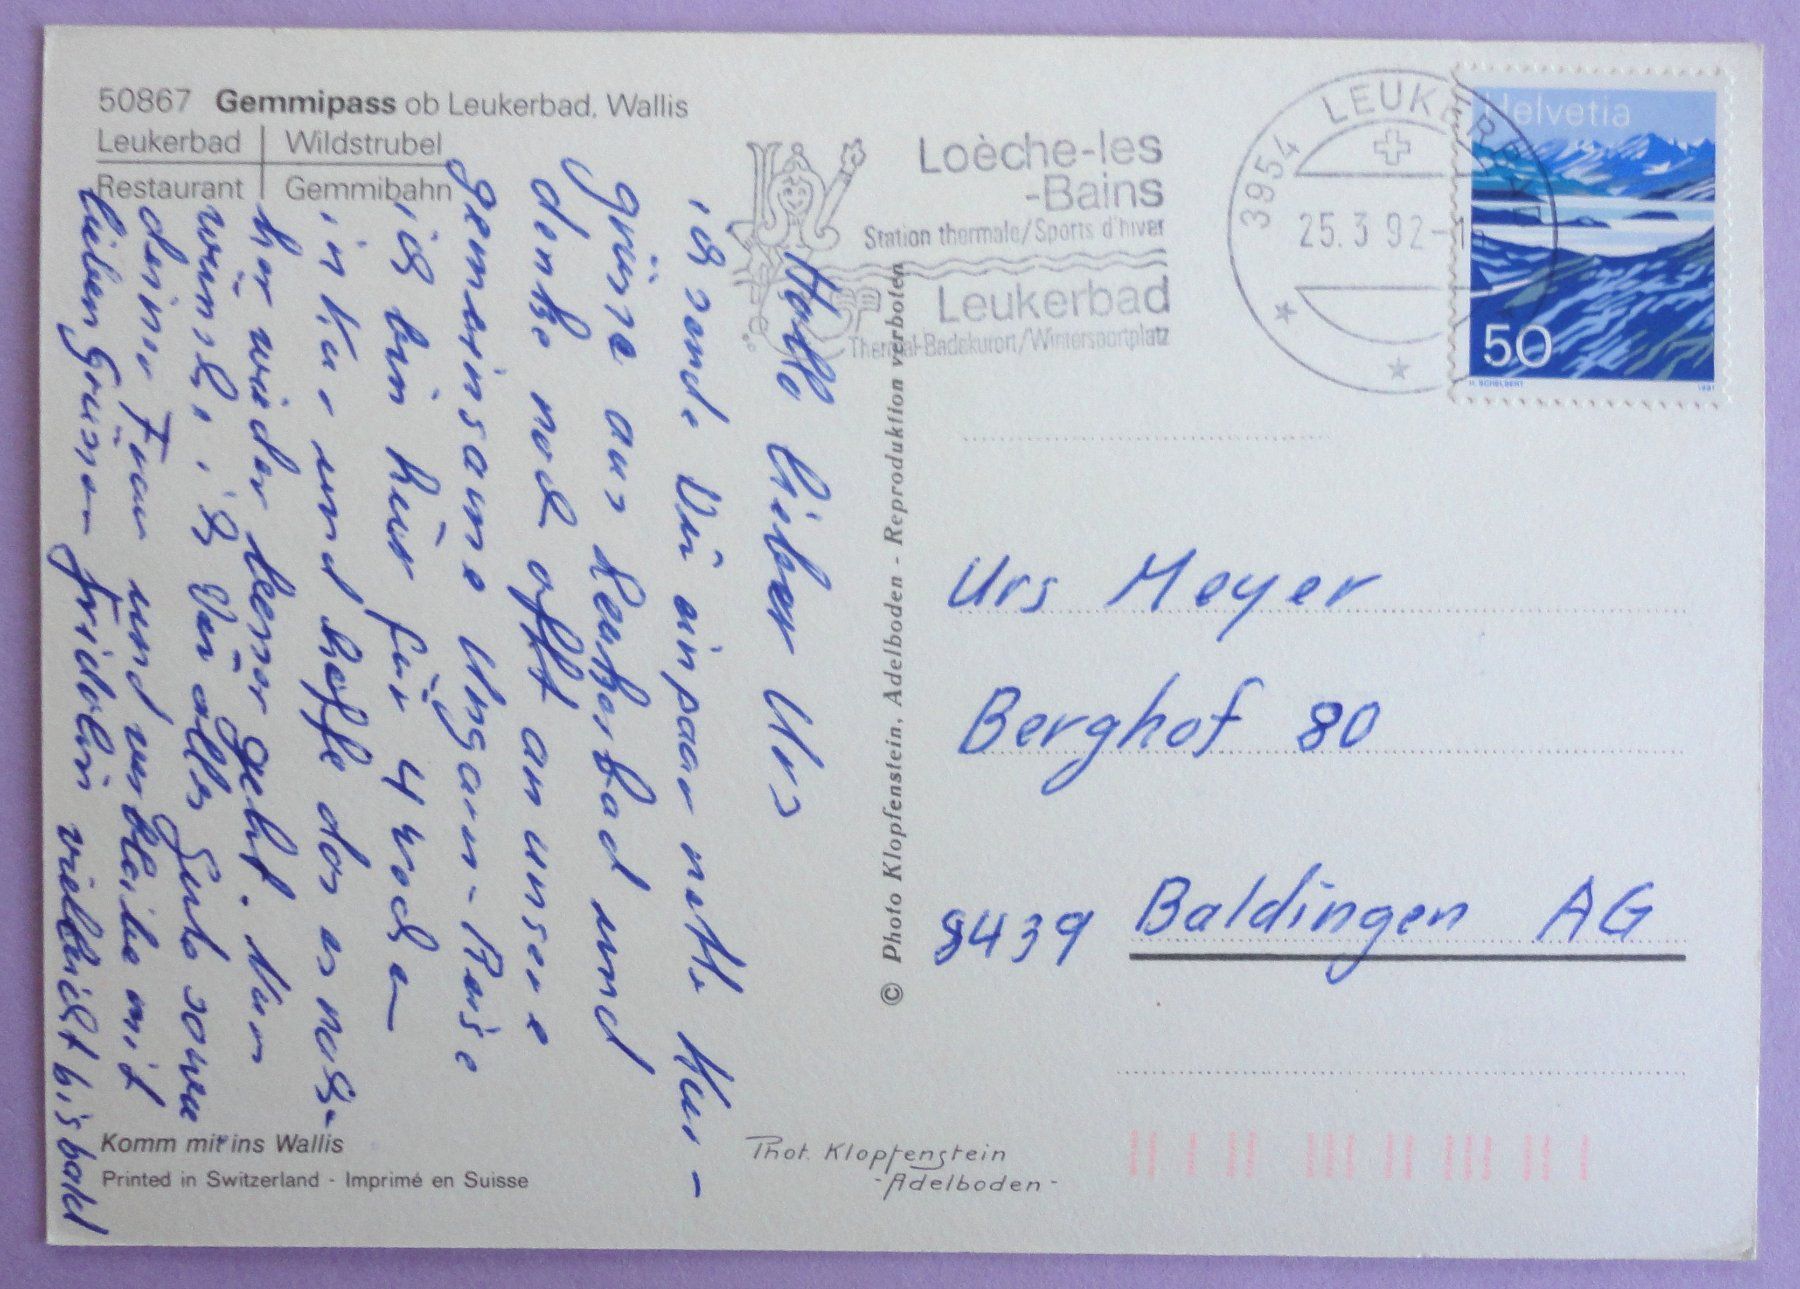 50867 Gemmipass ob Leukerbad, Wallis
Leukerbad | Wildstrubel
Restaurant | Gemmibahn
Loèche-les
-Bains
Station thermale/Sports d'hiver
Leukerbad
Thermal-Badekurort/Wintersportplatz
3954 LEUKERBAD
25.3.92-1
Helvetia
50
H. SCHELBERT 1991
Hallo lieber Urs
ich sende Dir ein paar nette Kur-
grüsse aus Leukerbad und
denke noch oft an unsere
gemeinsame Ungarn-Reise
ich bin hier für 4 Wochen
in Kur und hoffe das es nach-
her wieder besser geht. Nun
wünsche ich Dir alles Gute sowie
deiner Frau und verbleibe mit
lieben Grüssen Fridolin vielleicht bis bald
© Photo Klopfenstein, Adelboden - Reproduktion verboten
Urs Meyer
Berghof 80
8439 Baldingen AG
Komm mit ins Wallis
Printed in Switzerland - Imprimé en Suisse
Phot. Klopfenstein
-Adelboden-